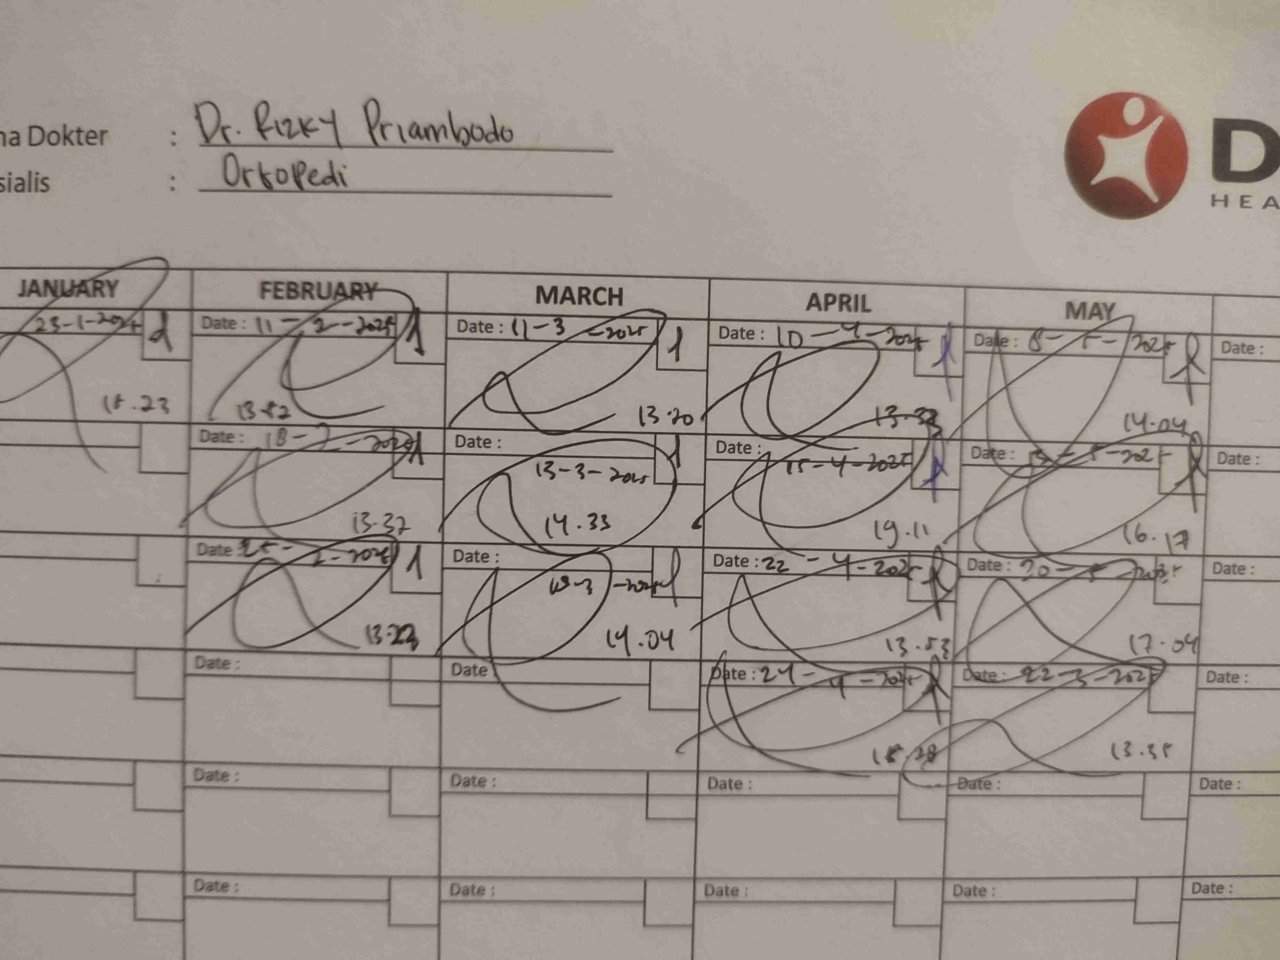 na Dokter : Dr. Rizky Priambodo
sialis : Ortopedi
D
HEA
JANUARY FEBRUARY MARCH APRIL MAY
23-1-2025 Date : 11-2-2025 1 Date : 11-3-2025 1 Date : 10-4-2025 Date : 8-5-2025 Date :
18.23 13.52 13.20 13.33 14.04
Date : 18-2-2025 1 Date : 13-3-2025 1 Date : 15-4-2025 Date : -5-2025 Date :
13.37 14.33 19.11 16.17
Date : 25-2-2025 1 Date : 18-3-2025 Date : 22-4-2025 Date : 20-5-2025 Date :
13.23 14.04 13.53 17.04
Date : Date Date : 24-4-2025 Date : 22-5-2025 Date :
18.28 13.35
Date : Date : Date : Date : Date :
Date : Date : Date : Date : Date :